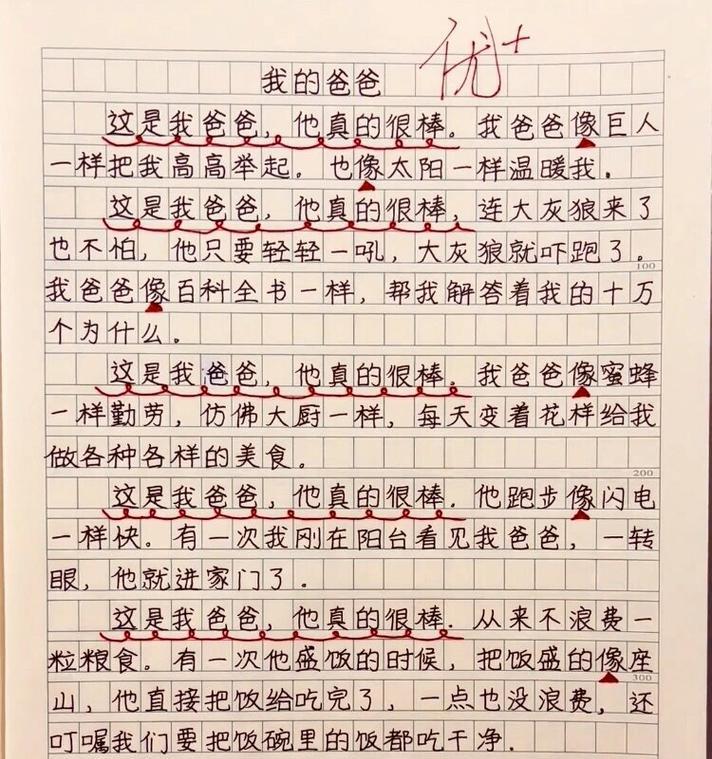 优+
我的爸爸
这是我爸爸，他真的很棒。我爸爸像巨人
一样把我高高举起。也像太阳一样温暖我。
这是我爸爸，他真的很棒，连大灰狼来了
也不怕，他只要轻轻一吼，大灰狼就吓跑了。
100
我爸爸像百科全书一样，帮我解答着我的十万
个为什么。
这是我爸爸，他真的很棒。我爸爸像蜜蜂
一样勤劳，仿佛大厨一样，每天变着花样给我
做各种各样的美食。
200
这是我爸爸，他真的很棒.他跑步像闪电
一样快。有一次我刚在阳台看见我爸爸，一转
眼，他就进家门了.
这是我爸爸，他真的很棒.从来不浪费一
粒粮食。有一次他盛饭的时候，把饭盛的像座
300
山，他直接把饭给吃完了，一点也没浪费，还
叮嘱我们要把饭碗里的饭都吃干净.